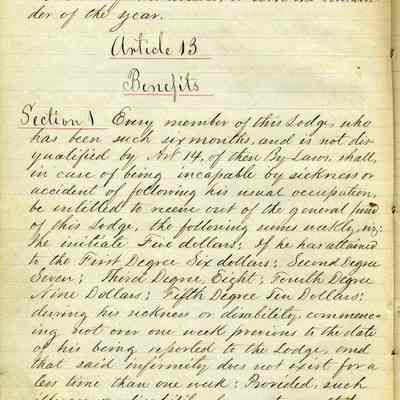 der of the year.
Article 13
Benefits
Section 1 Every member of this Lodge, who
has been such six months, and is not dis
qualified by Art 14, of these By-Laws, shall,
in case of being incapable by sickness or
accident of following his usual occupation,
be entitled to receive out of the general fund
of this Lodge, the following sums weekly, viz;
The initiate Five dollars; If he has attained
to the First Degree Six dollars; Second Degree
Seven; Third Degree, Eight; Fourth Degree
Nine Dollars; Fifth Degree Ten Dollars;
during his sickness or disability, commenc-
ing not over one week previous to the date
of his being reported to the Lodge, and
that said infirmity does not exist for a
less time than one week: Provided, such